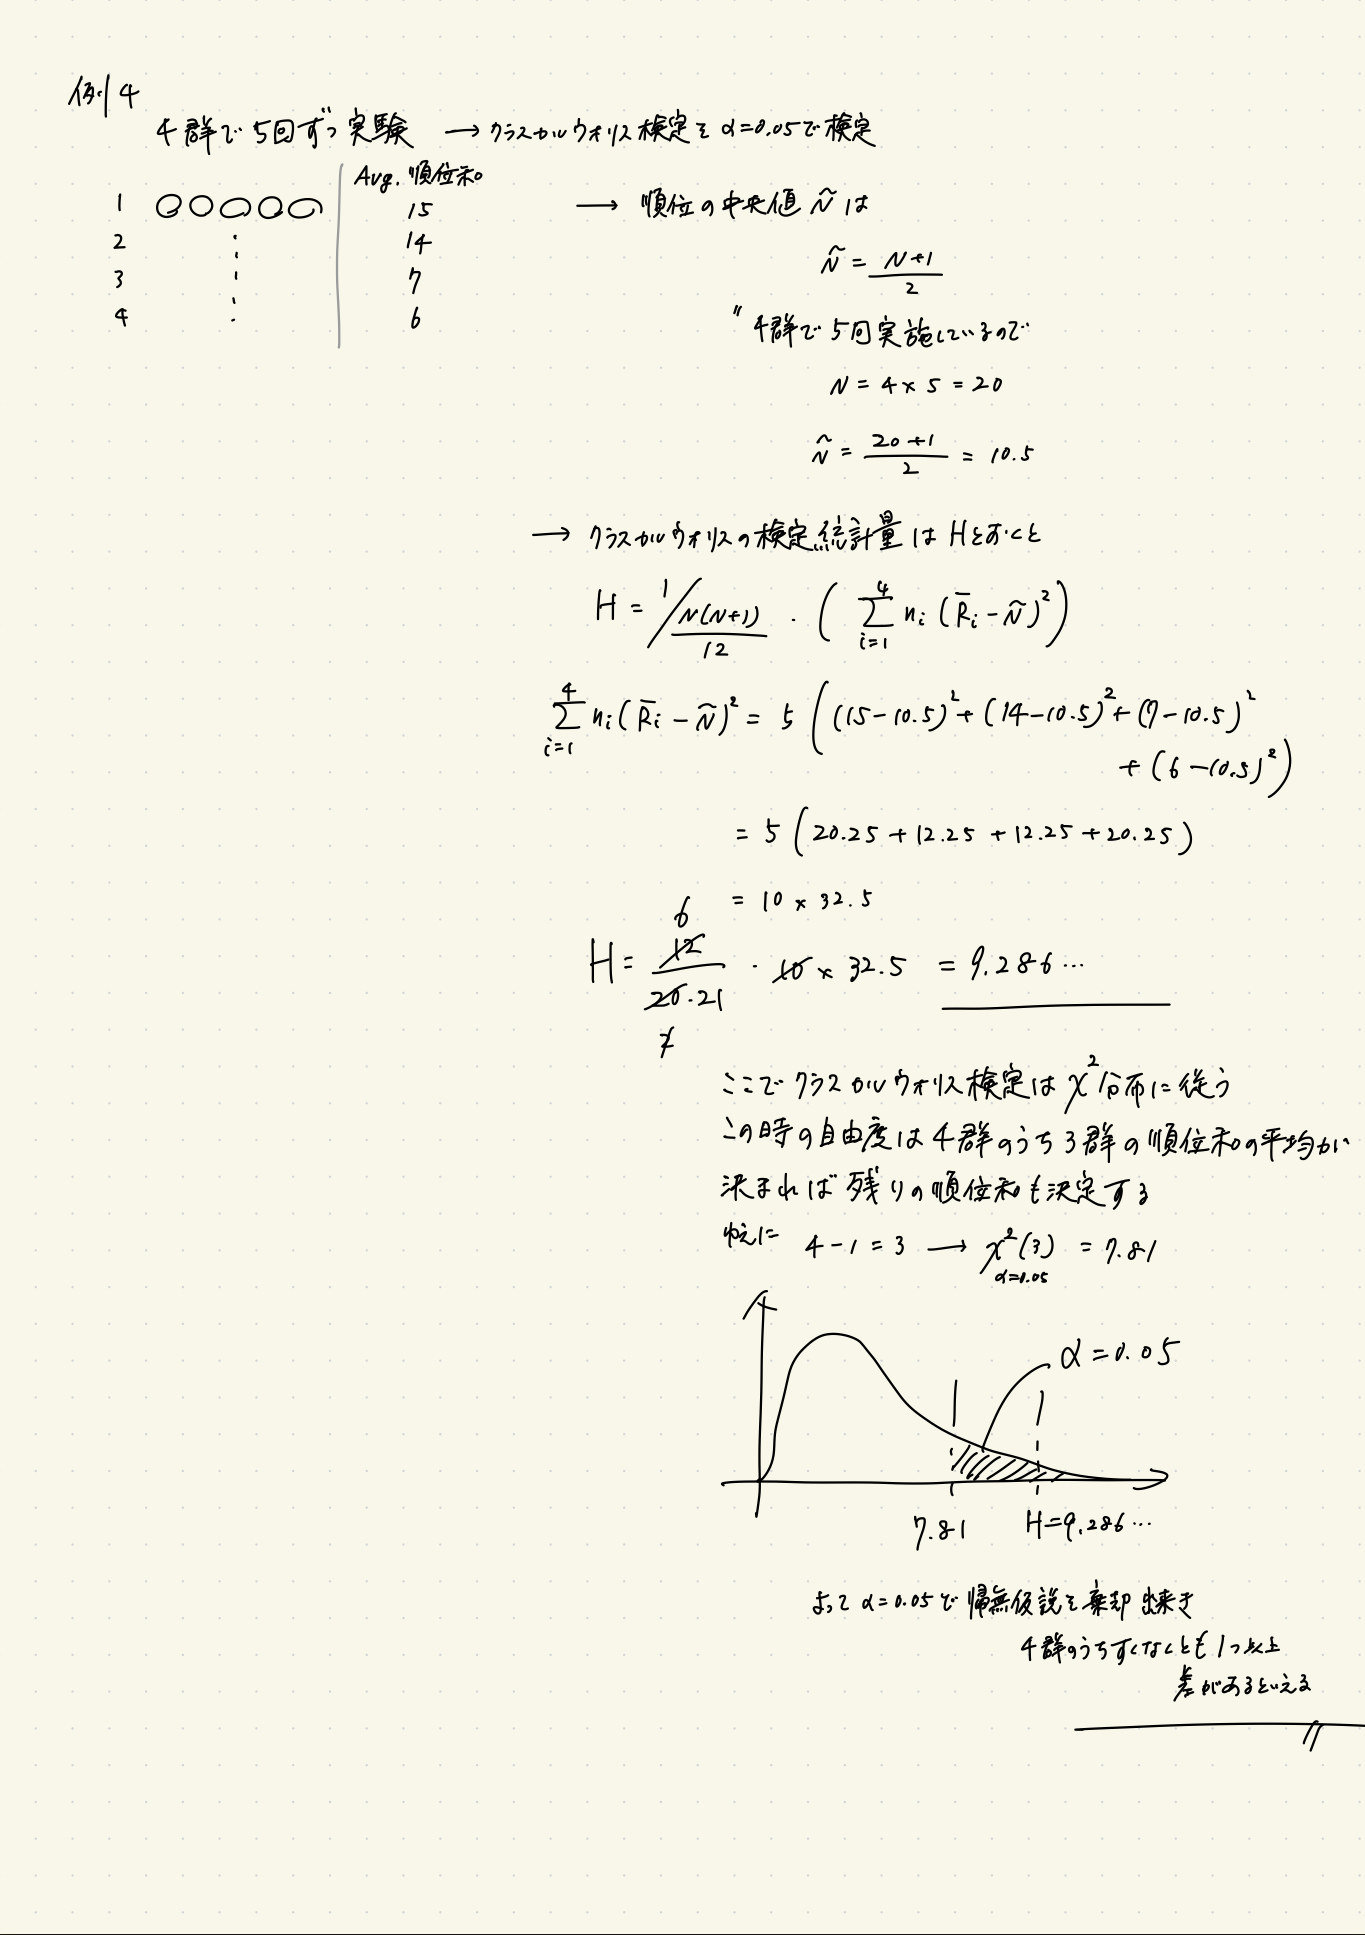 例4
4群で5回ずつ実験 → クラスカルウォリス検定を α=0.05で検定
Avg. 順位和
1 15
2 14
3 7
4 6
→ 順位の中央値 Ñ は
Ñ = (N+1)/2
〃 4群で5回実施しているので
N = 4 × 5 = 20
Ñ = (20+1)/2 = 10.5
→ クラスカルウォリスの検定統計量は Hとおくと
H = 1/(N(N+1)/12) · ( Σ_{i=1}^{4} n_i (R̄_i - Ñ)² )
Σ_{i=1}^{4} n_i (R̄_i - Ñ)² = 5 ( (15-10.5)² + (14-10.5)² + (7-10.5)²
+ (6-10.5)² )
= 5 ( 20.25 + 12.25 + 12.25 + 20.25 )
= 10 × 32.5
6
H = 12/(20·21) · 10 × 32.5 = 9.286…
2
ここでクラスカルウォリス検定は χ²分布に従う
この時の自由度は4群のうち3群の順位和の平均が
決まれば残りの順位和も決定する
ゆえに 4-1=3 → χ²(3) = 7.81
α=0.05
α=0.05
7.81 H=9.286…
よって α=0.05で 帰無仮説を棄却出来き
4群のうちすくなくとも1つ以上
差があるといえる